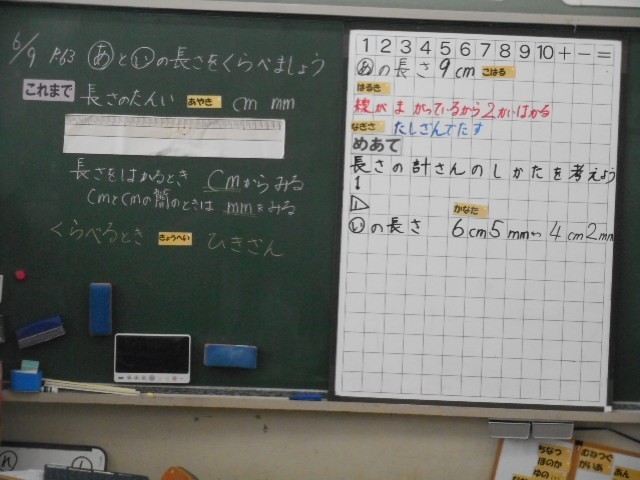 6/9 P.63 あといの長さをくらべましょう
これまで 長さのたんい あやき cm mm
長さをはかるとき cmからみる
cmとcmの間のときは mmをみる
くらべるとき きょうへい ひきざん
1 2 3 4 5 6 7 8 9 10 + - =
あの長さ 9cm こはる
はるき
線がまがっているから2かいはかる
なぎさ たしざんでたす
めあて
長さの計さんのしかたを考えよう
1
かなた
いの長さ 6cm5mm 4cm2mm
ちなつ
ほのか
ゆの
むなつぐ
かいあ
あん